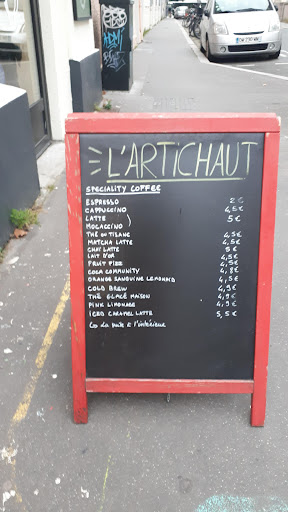 L'ARTICHAUT
SPECIALITY COFFEE
ESPRESSO 2 €
CAPPUCCINO 4,5 €
LATTE 5 €
MOCACCINO
THÉ OU TISANE 4,5 €
MATCHA LATTE 5 €
CHAI LATTE 5 €
LAIT D'OR 4,5 €
FRUIT FIZZ 4,5 €
COCA COMMUNITY 4,8 €
ORANGE SANGUINE LEMONAID 4,5 €
COLD BREW 4,9 €
THÉ GLACÉ MAISON 4,9 €
PINK LIMONADE 4,9 €
ICED CARAMEL LATTE 5,5 €
La suite à l'intérieur